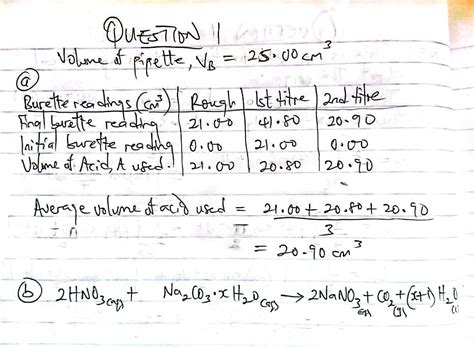 ① QUESTION 1
Volume of pipette, V_B = 25.00 cm³
ⓐ
Burette readings (cm³) | Rough | 1st titre | 2nd titre
Final burette reading | 21.00 | 41.80 | 20.90
Initial burette reading | 0.00 | 21.00 | 0.00
Volume of Acid, A used. | 21.00 | 20.80 | 20.90
Average volume of acid used = 21.00 + 20.80 + 20.90
3
= 20.90 cm³
ⓑ 2HNO₃(aq) + Na₂CO₃·xH₂O(aq) → 2NaNO₃(aq) + CO₂(g) + (x+1)H₂O(l)